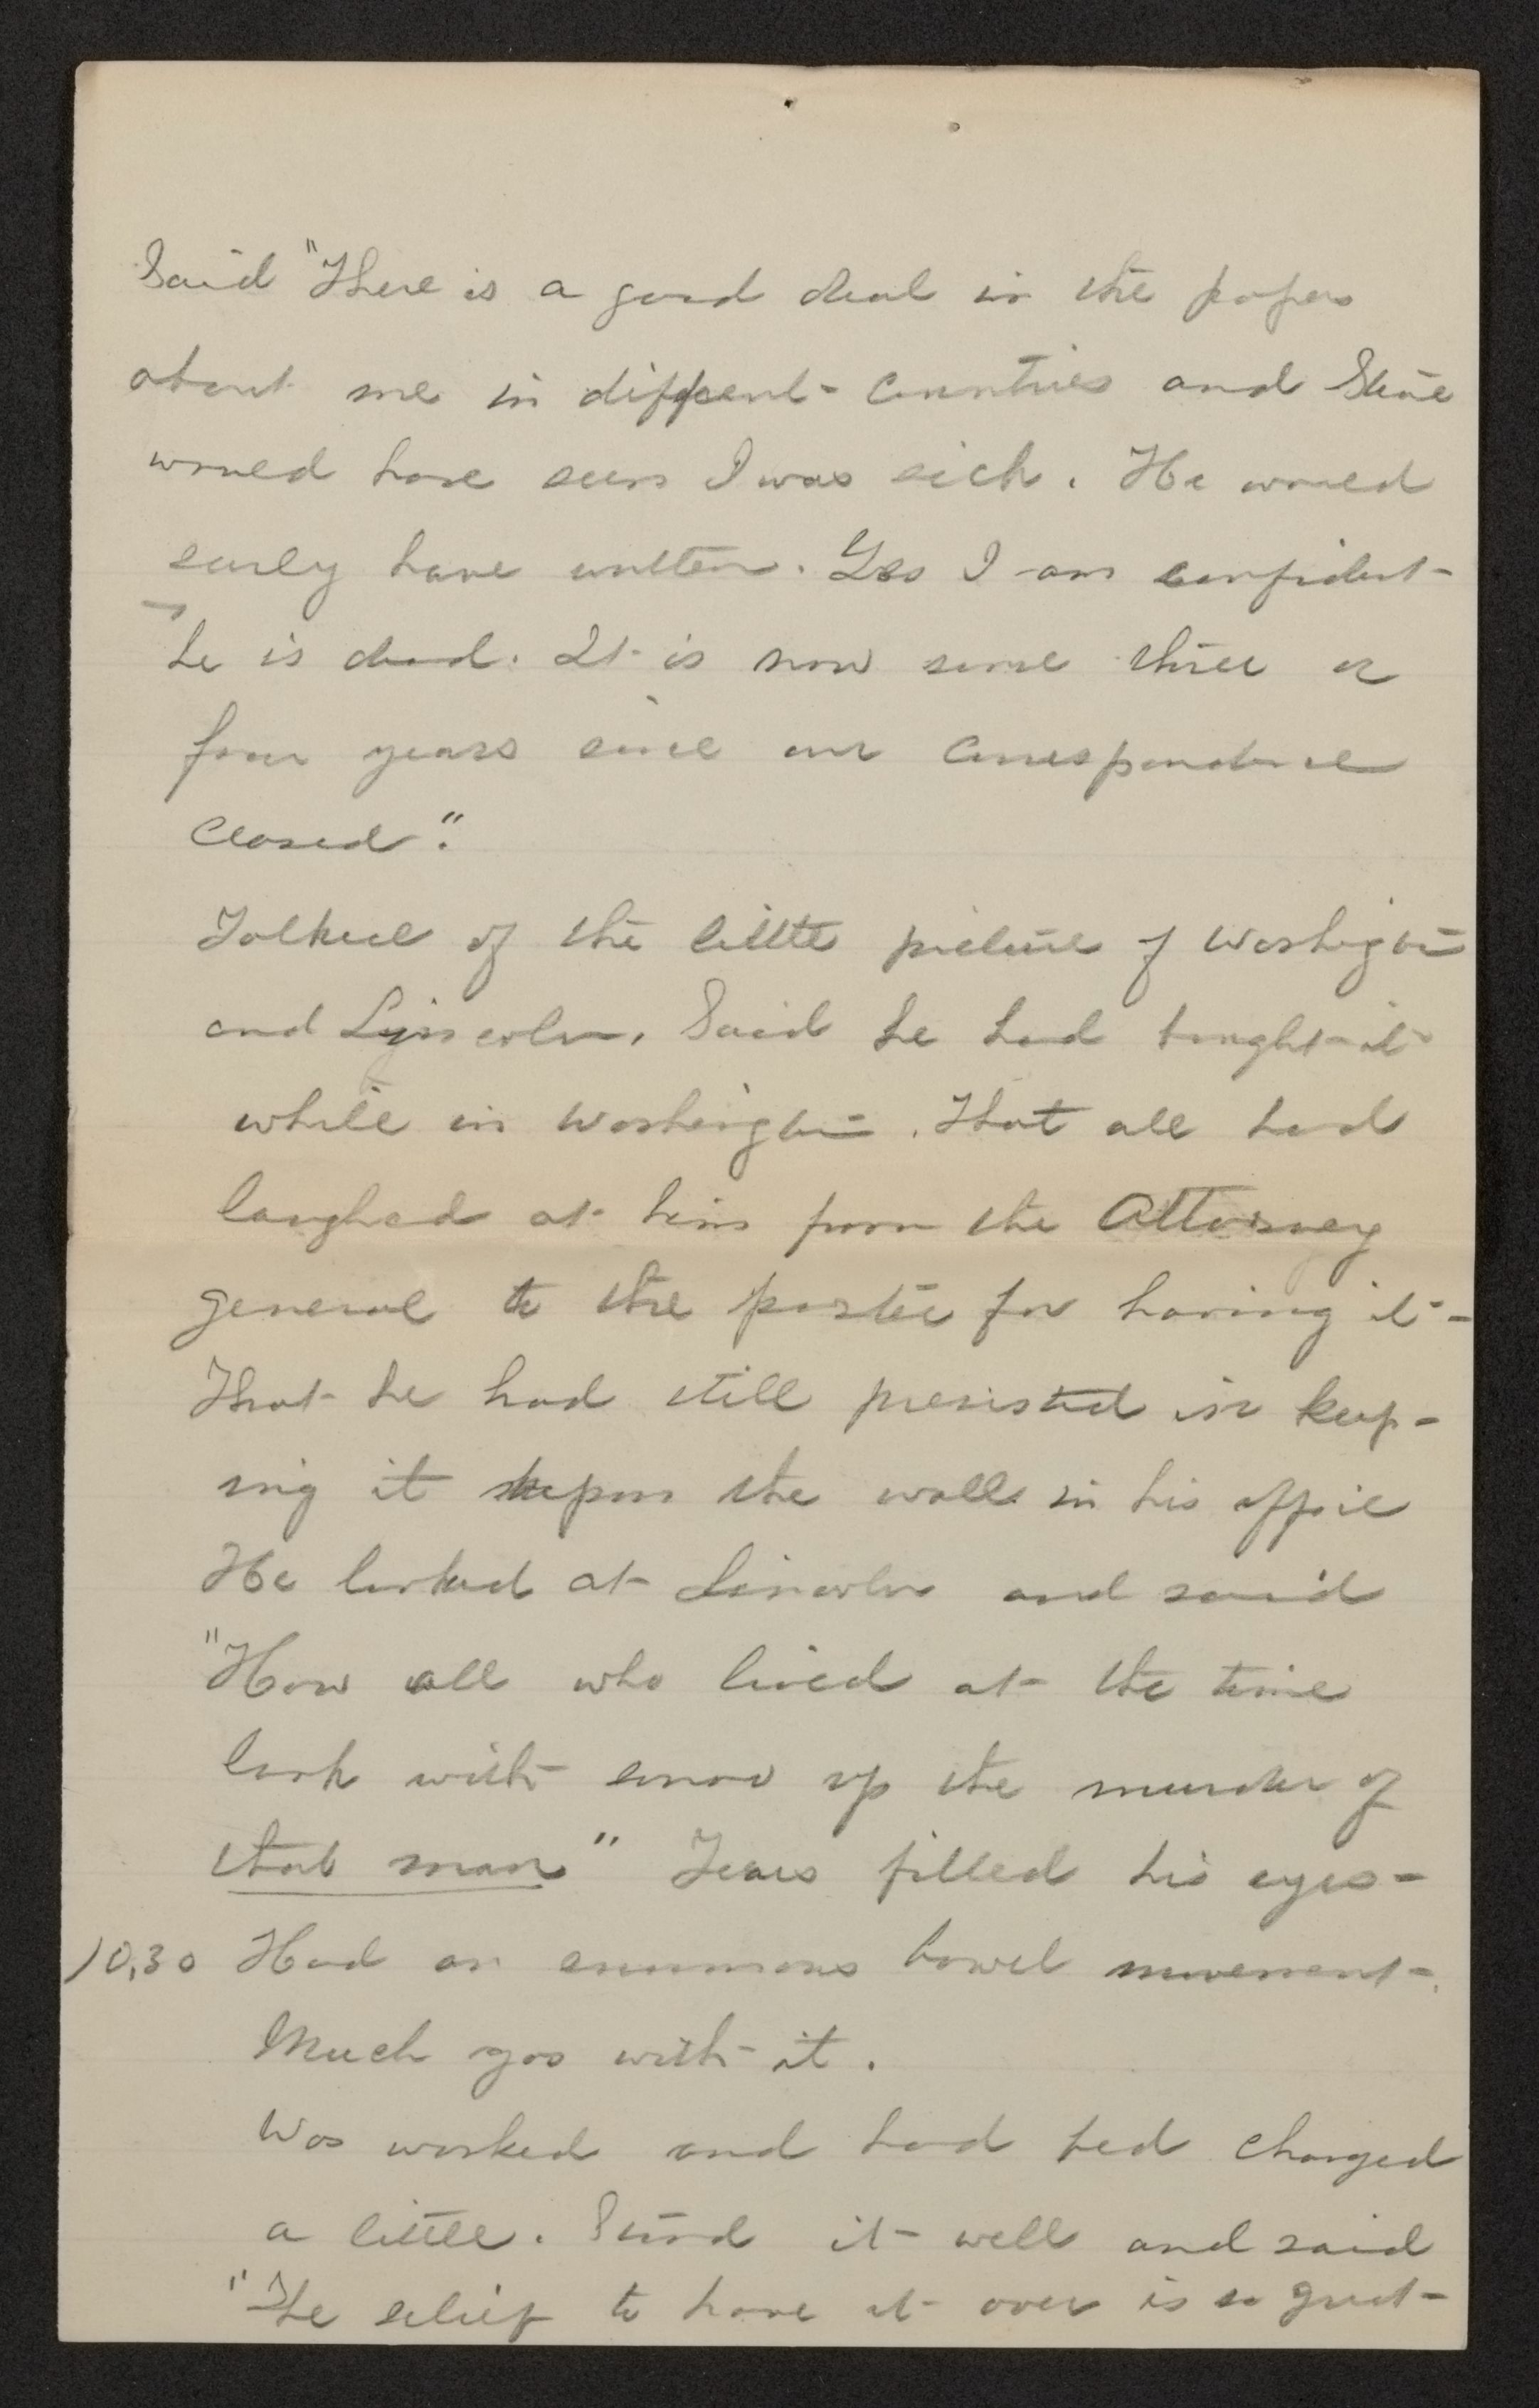 Said "There is a good deal in the papers
about me in different countries and Steve
would have seen I was sick. He would
surely have written. Yes I am confident
he is dead. It is now some three or
four years since our correspondence
closed."
Talked of the little picture of Washington
and Lincoln. Said he had bought it
while in Washington. That all had
laughed at him from the Attorney
general to the porter for having it-
That he had still persisted in keep-
ing it upon the wall in his office
He looked at Lincoln and said
"How all who lived at the time
look with sorrow up the murder of
that man" Tears filled his eyes-
10,30 Had an enormous bowel movement-
Much gas with it.
Was washed and had bed changed
a little. Stood it well and said
"The relief to have it over is so great-